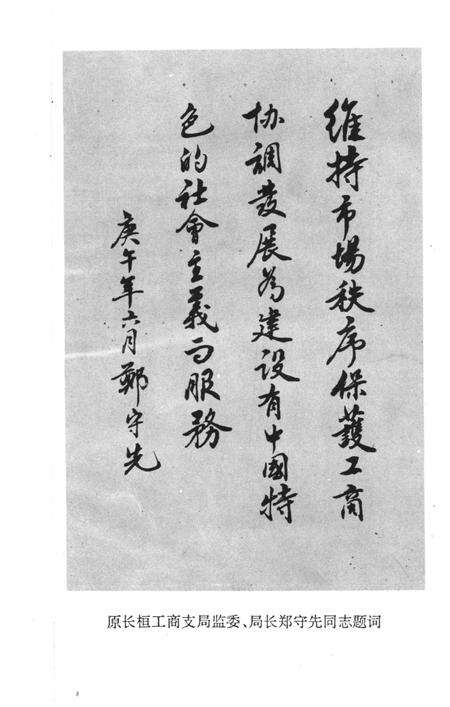 維持市場秩序保護工商
协調發展為建设有中國特
色的社會主義而服務
庚午年六月鄭守先
原长桓工商支局监委、局长郑守先同志题词